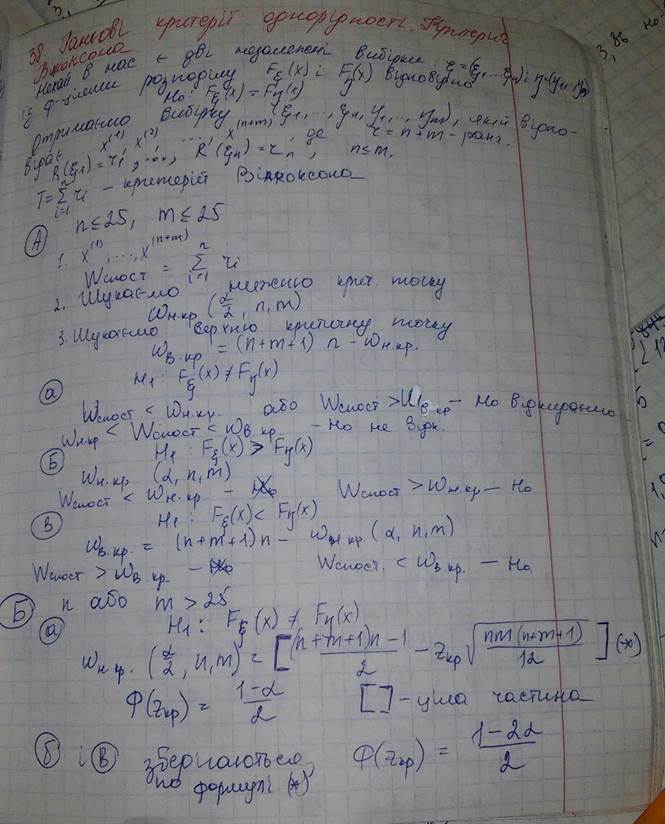 38. Рангові критерії однорідності. Критерій
Вілкоксона
Нехай в нас є дві незалежні вибірки: ξ=(ξ₁,...ξₙ) і η=(η₁...ηₘ)
із ф-ціями розподілу F_ξ(x) і F_η(x) відповідно
H₀: F_ξ(x) = F_η(x)
Отримаємо вибірку (ξ₁,..., ξₙ, η₁,..., ηₘ), якій відпо-
відає x⁽¹⁾, x⁽²⁾, ..., x⁽ⁿ⁺ᵐ⁾, де r = n+m – ранг.
R(ξ₁) = r₁, ..., R(ξₙ) = rₙ, n≤m.
T = Σᵢ₌₁ⁿ rᵢ – критерій Вілкоксона
А n≤25, m≤25
1. x⁽¹⁾,..., x⁽ⁿ⁺ᵐ⁾
Wспост = Σᵢ₌₁ⁿ rᵢ
2. Шукаємо нижню крит. точку
ωн.кр (α/2, n, m)
3. Шукаємо верхню критичну точку
ωв.кр = (n+m+1) n – ωн.кр.
а H₁: F_ξ(x) ≠ F_η(x)
Wспост < ωн.кр. або Wспост > Wв.кр – H₀ відкидаємо
ωн.кр < Wспост < ωв.кр. – H₀ не відк.
Б H₁: F_ξ(x) > F_η(x)
ωн.кр (α, n, m)
Wспост < ωн.кр – H₀ Wспост > ωн.кр – H₀
В H₁: F_ξ(x) < F_η(x)
ωв.кр. = (n+m+1)n – ωн.кр. (α, n, m)
Wспост > ωв.кр. – H₀ Wспост. < ωв.кр. – H₀
Б n або m > 25
а H₁: F_ξ(x) ≠ F_η(x)
ωн.кр. (α/2, n, m) = [((n+m+1)n–1)/2 – zкр √(nm(n+m+1)/12)] (*)
Φ(zкр) = (1–α)/2 [ ] – ціла частина
б і В зберігаються Φ(zкр) = (1–2α)/2
по формулі (*)